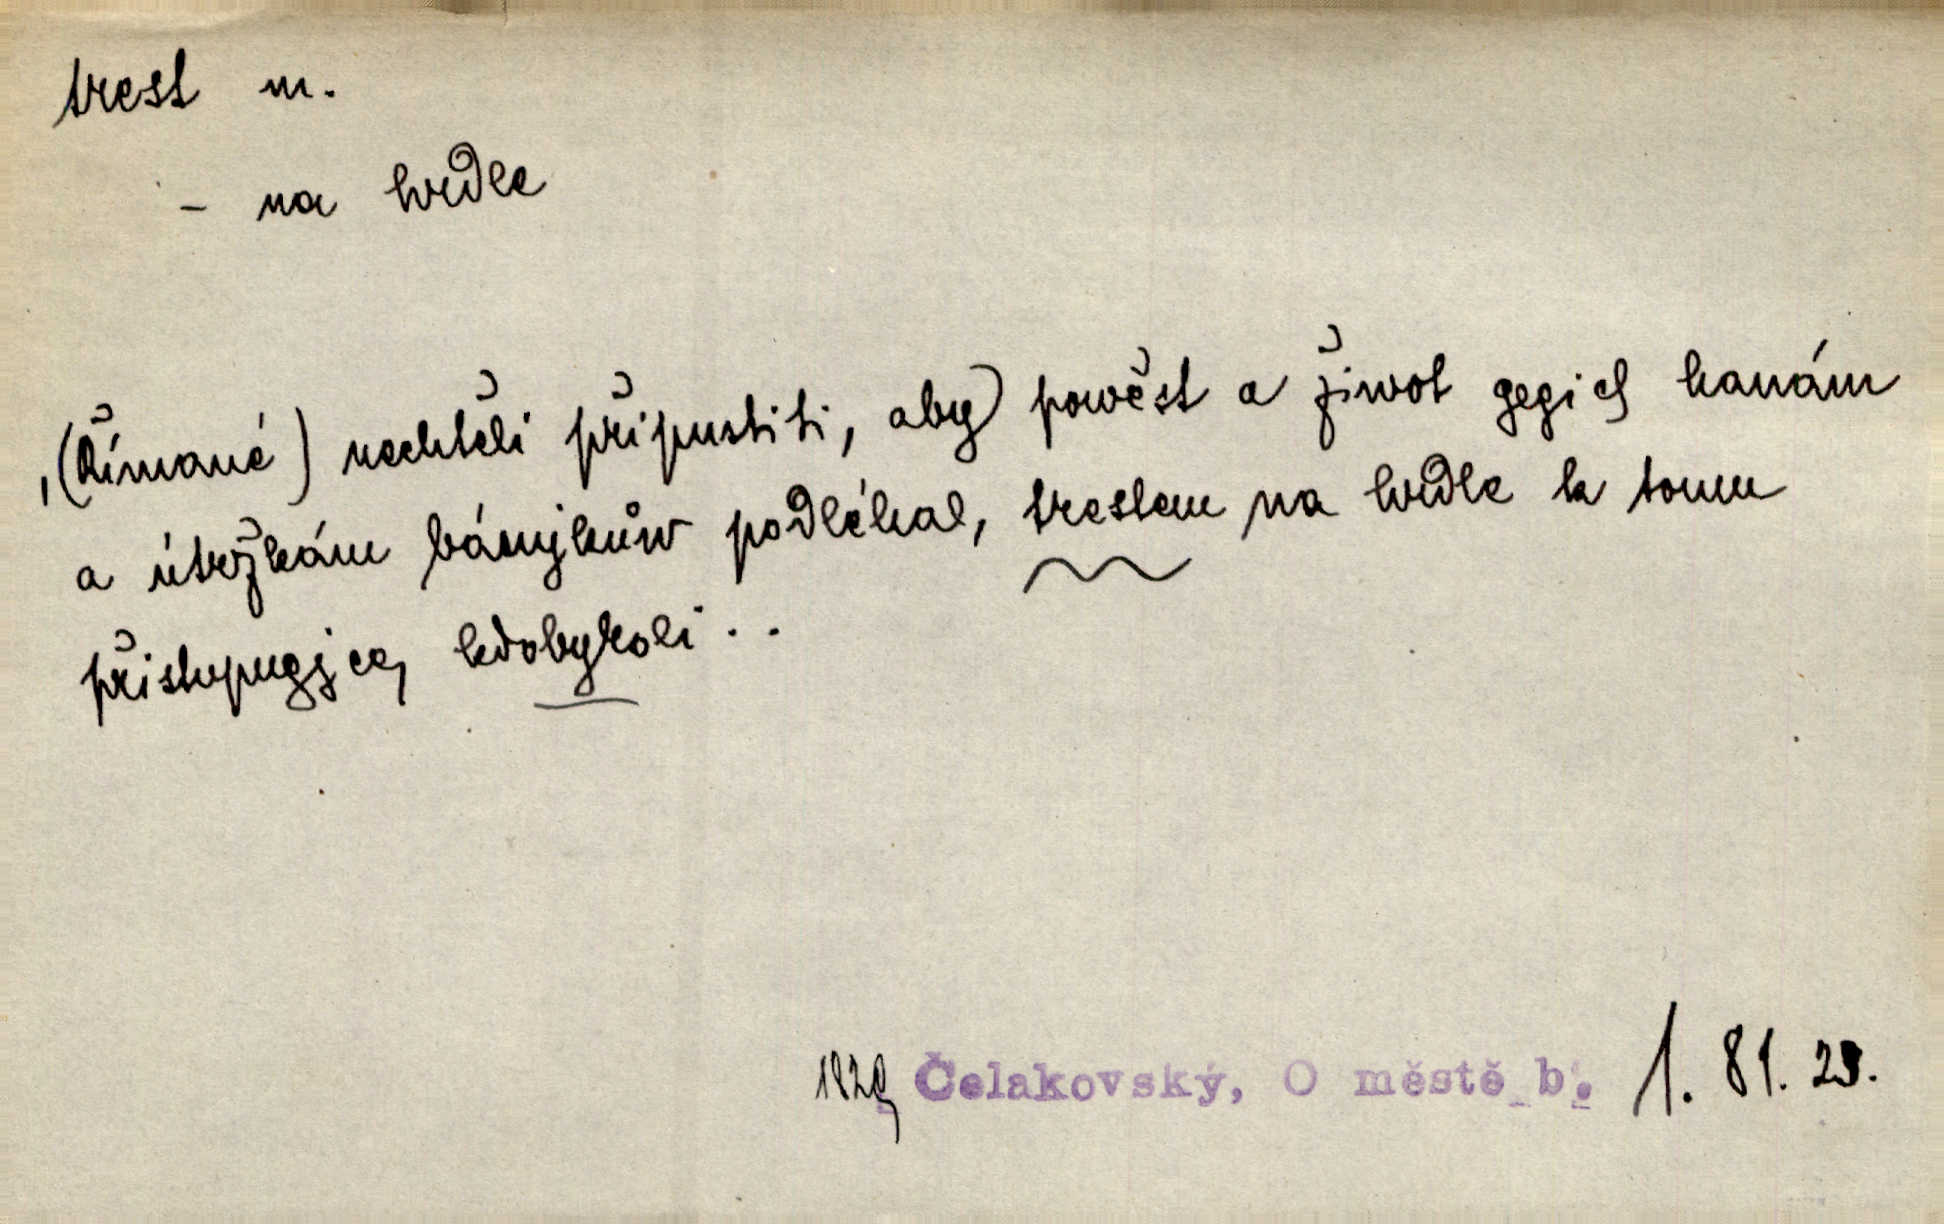 trest m.
– na hrdle
, (Římané) nechtěli připustiti, aby powěst a žiwot gegich hanám
a útržkám básnjkůw podléhal, trestem na hrdle k tomu
přistupugjce, kdobykoli . .
1829 Čelakovský, O městě b. 1. 81. 23.